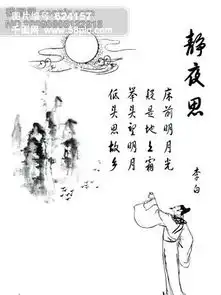 图片编号:824157
千图网 www.58pic.com
静夜思
床前明月光
疑是地上霜
举头望明月
低头思故乡
李白